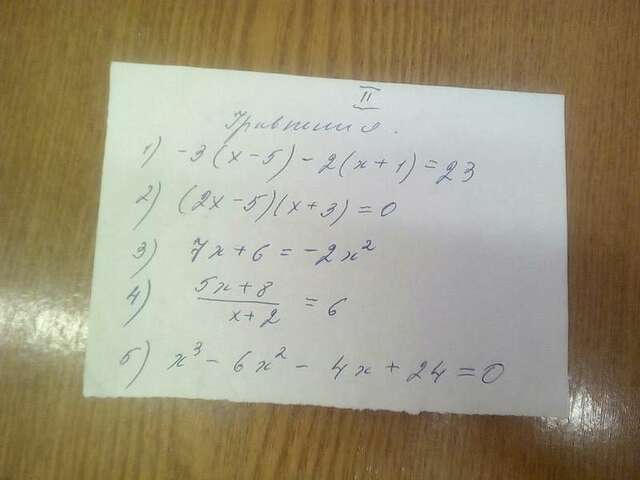 II
Уравнения.
1) -3(x-5)-2(x+1)=23
2) (2x-5)(x+3)=0
3) 7x+6=-2x²
4) (5x+8)/(x+2)=6
5) x³-6x²-4x+24=0